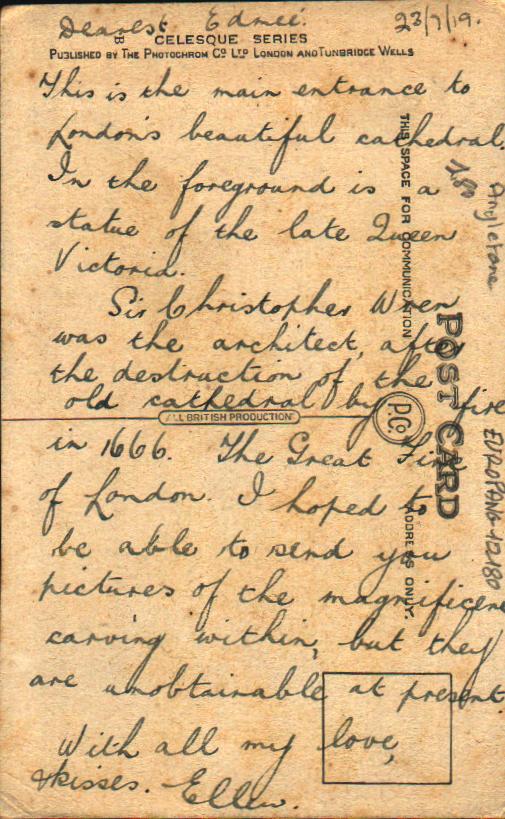 Dearest Edmée.
23/7/19.
B
CELESQUE SERIES
PUBLISHED BY THE PHOTOCHROM CO LTD LONDON AND TUNBRIDGE WELLS
This is the main entrance to
London's beautiful cathedral.
In the foreground is a
statue of the late Queen
Victoria.
Sir Christopher Wren
was the architect, after
the destruction of the
old cathedral by fire
ALL BRITISH PRODUCTION
P.Co
in 1666. The Great Fire
of London. I hoped to
be able to send you
pictures of the magnificent
carving within, but they
are unobtainable at present.
With all my love,
& kisses. Ellen.
THIS SPACE FOR COMMUNICATION
ADDRESS ONLY.
POST CARD
1.80
Angleterre